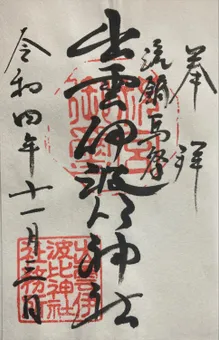 奉拝
流鏑馬祭
出雲伊波比神社
令和四年十一月三日
出雲伊
波比神社
社務所